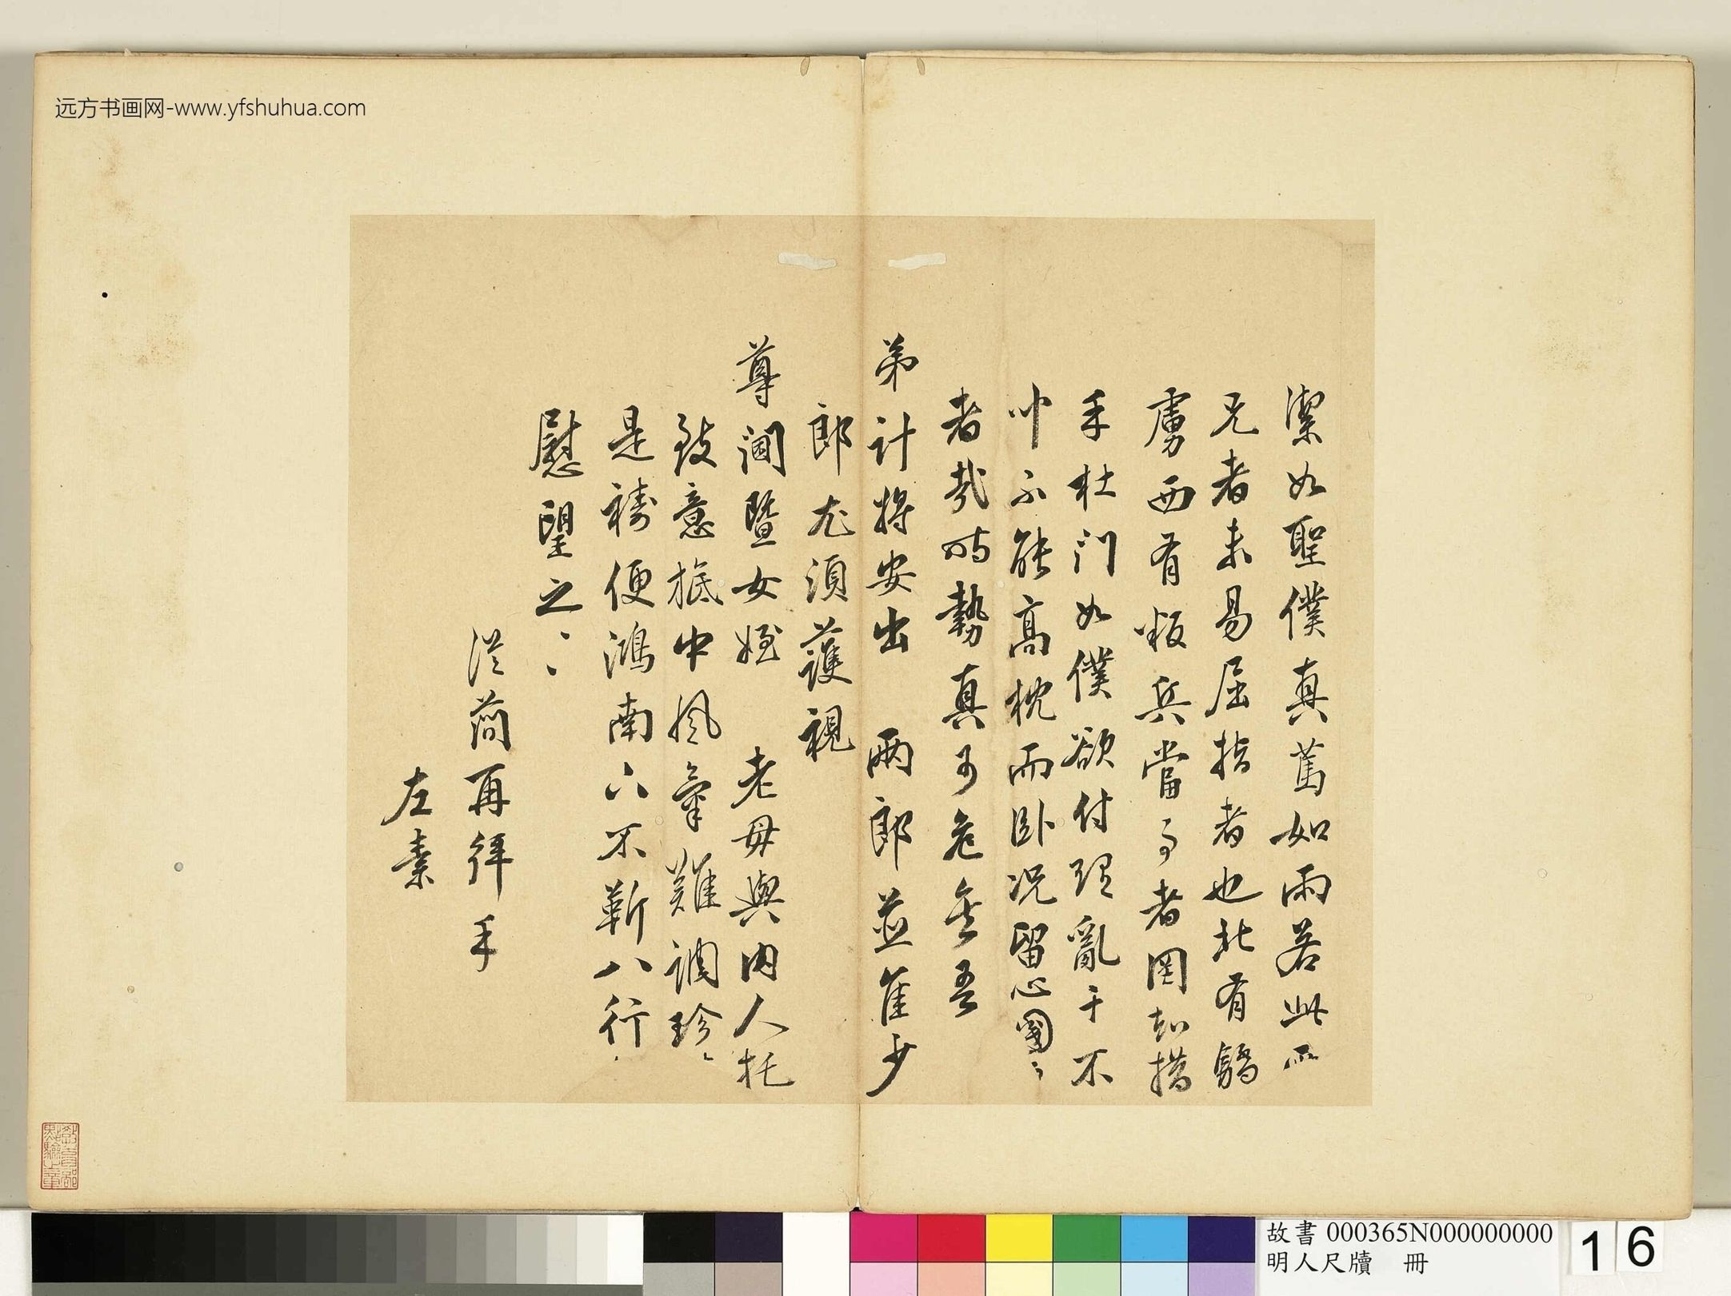 远方书画网-www.yfshuhua.com
潔如聖僕真篤如雨若此
兄者未易屈指者也北有驕
虜西有叛兵當事者罔知措
手杜門如僕欲付理亂于不
不能高枕而卧况留心國〻
者哉時勢真可危無吾
弟計將安出 兩郎並隹少
郎尤須護視
尊閫暨女姪 老母與内人托
致意 中風氣難調珍〻
是禱便鴻南 不靳八行
慰望之〻
從簡再拜手
左素
故書 000365N000000000
明人尺牘 冊
16